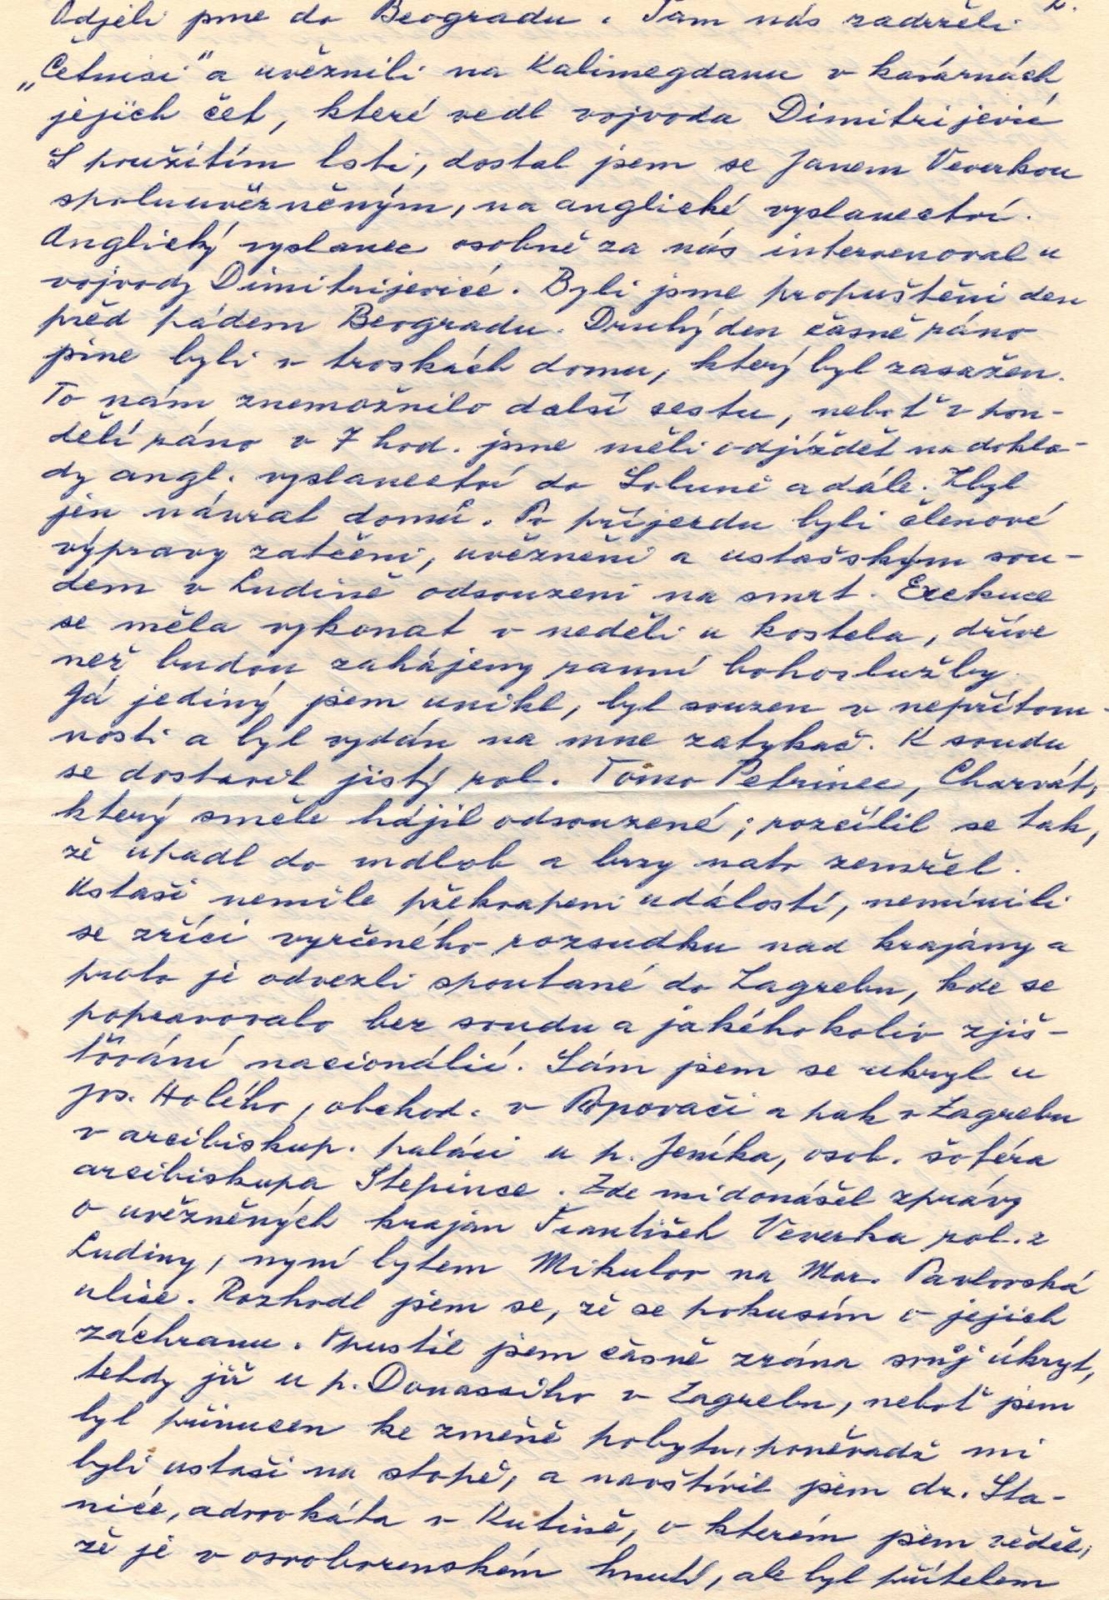 2.
Odjeli jsme do Beogradu. Tam nás zadrželi
„Četnici" a uvěznili na Kalimegdanu v kasárnách
jejich čet, které vedl vojvoda Dimitrijevič
S použitím lsti, dostal jsem se Janem Veverkou
spoluuvězněným, na anglické vyslanectví.
Anglický vyslanec osobně za nás intervenoval u
vojvody Dimitrijeviče. Byli jsme propuštěni den
před pádem Beogradu. Druhý den časně ráno
jsme byli v troskách domu, který byl zasažen.
To nám znemožnilo další cestu, neboť v pon-
dělí ráno v 7 hod. jsme měli odjíždět na dokla-
dy angl. vyslanectví do Soluně a dále. Zbyl
jen návrat domů. Po příjezdu byli členové
výpravy zatčeni, uvězněni a ustašským sou-
dem v Ludině odsouzeni na smrt. Exekuce
se měla vykonat v neděli u kostela, dříve
než budou zahájeny ranní bohoslužby.
Já jediný jsem unikl, byl souzen v nepřítom-
nosti a byl vydán na mne zatykač. K soudu
se dostavil jistý rol. Tomo Petrinec, Charvát,
který směle hájil odsouzené; rozčílil se tak,
že upadl do mdlob a brzy nato zemřel.
Ustaši nemile překvapeni událostí, nemínili
se zříci vyrčeného rozsudku nad krajány a
proto je odvezli spoutané do Zagrebu, kde se
popravovalo bez soudu a jakéhokoliv zjiš-
ťování nacionálií. Sám jsem se ukryl u
Jos. Holého, obchod. v Popovači a pak v Zagrebu
v arcibiskup. paláci u p. Jeníka, osob. šoféra
arcibiskupa Stepince. Zde mi donášel zprávy
o uvězněných krajan František Veverka rol. z
Ludiny, nyní bytem Mikulov na Mor. Pavlovská
ulice. Rozhodl jsem se, že se pokusím o jejich
záchranu. Opustil jsem časně zrána svůj úkryt,
tehdy již u p. Donassiho v Zagrebu, neboť jsem
byl přinucen ke změně pobytu, poněvadž mi
byli ustaši na stopě, a navštívil jsem dr. Sta-
niče, advokáta v Kutině, o kterém jsem věděl,
že je v osvobozenském hnutí, ale byl přítelem